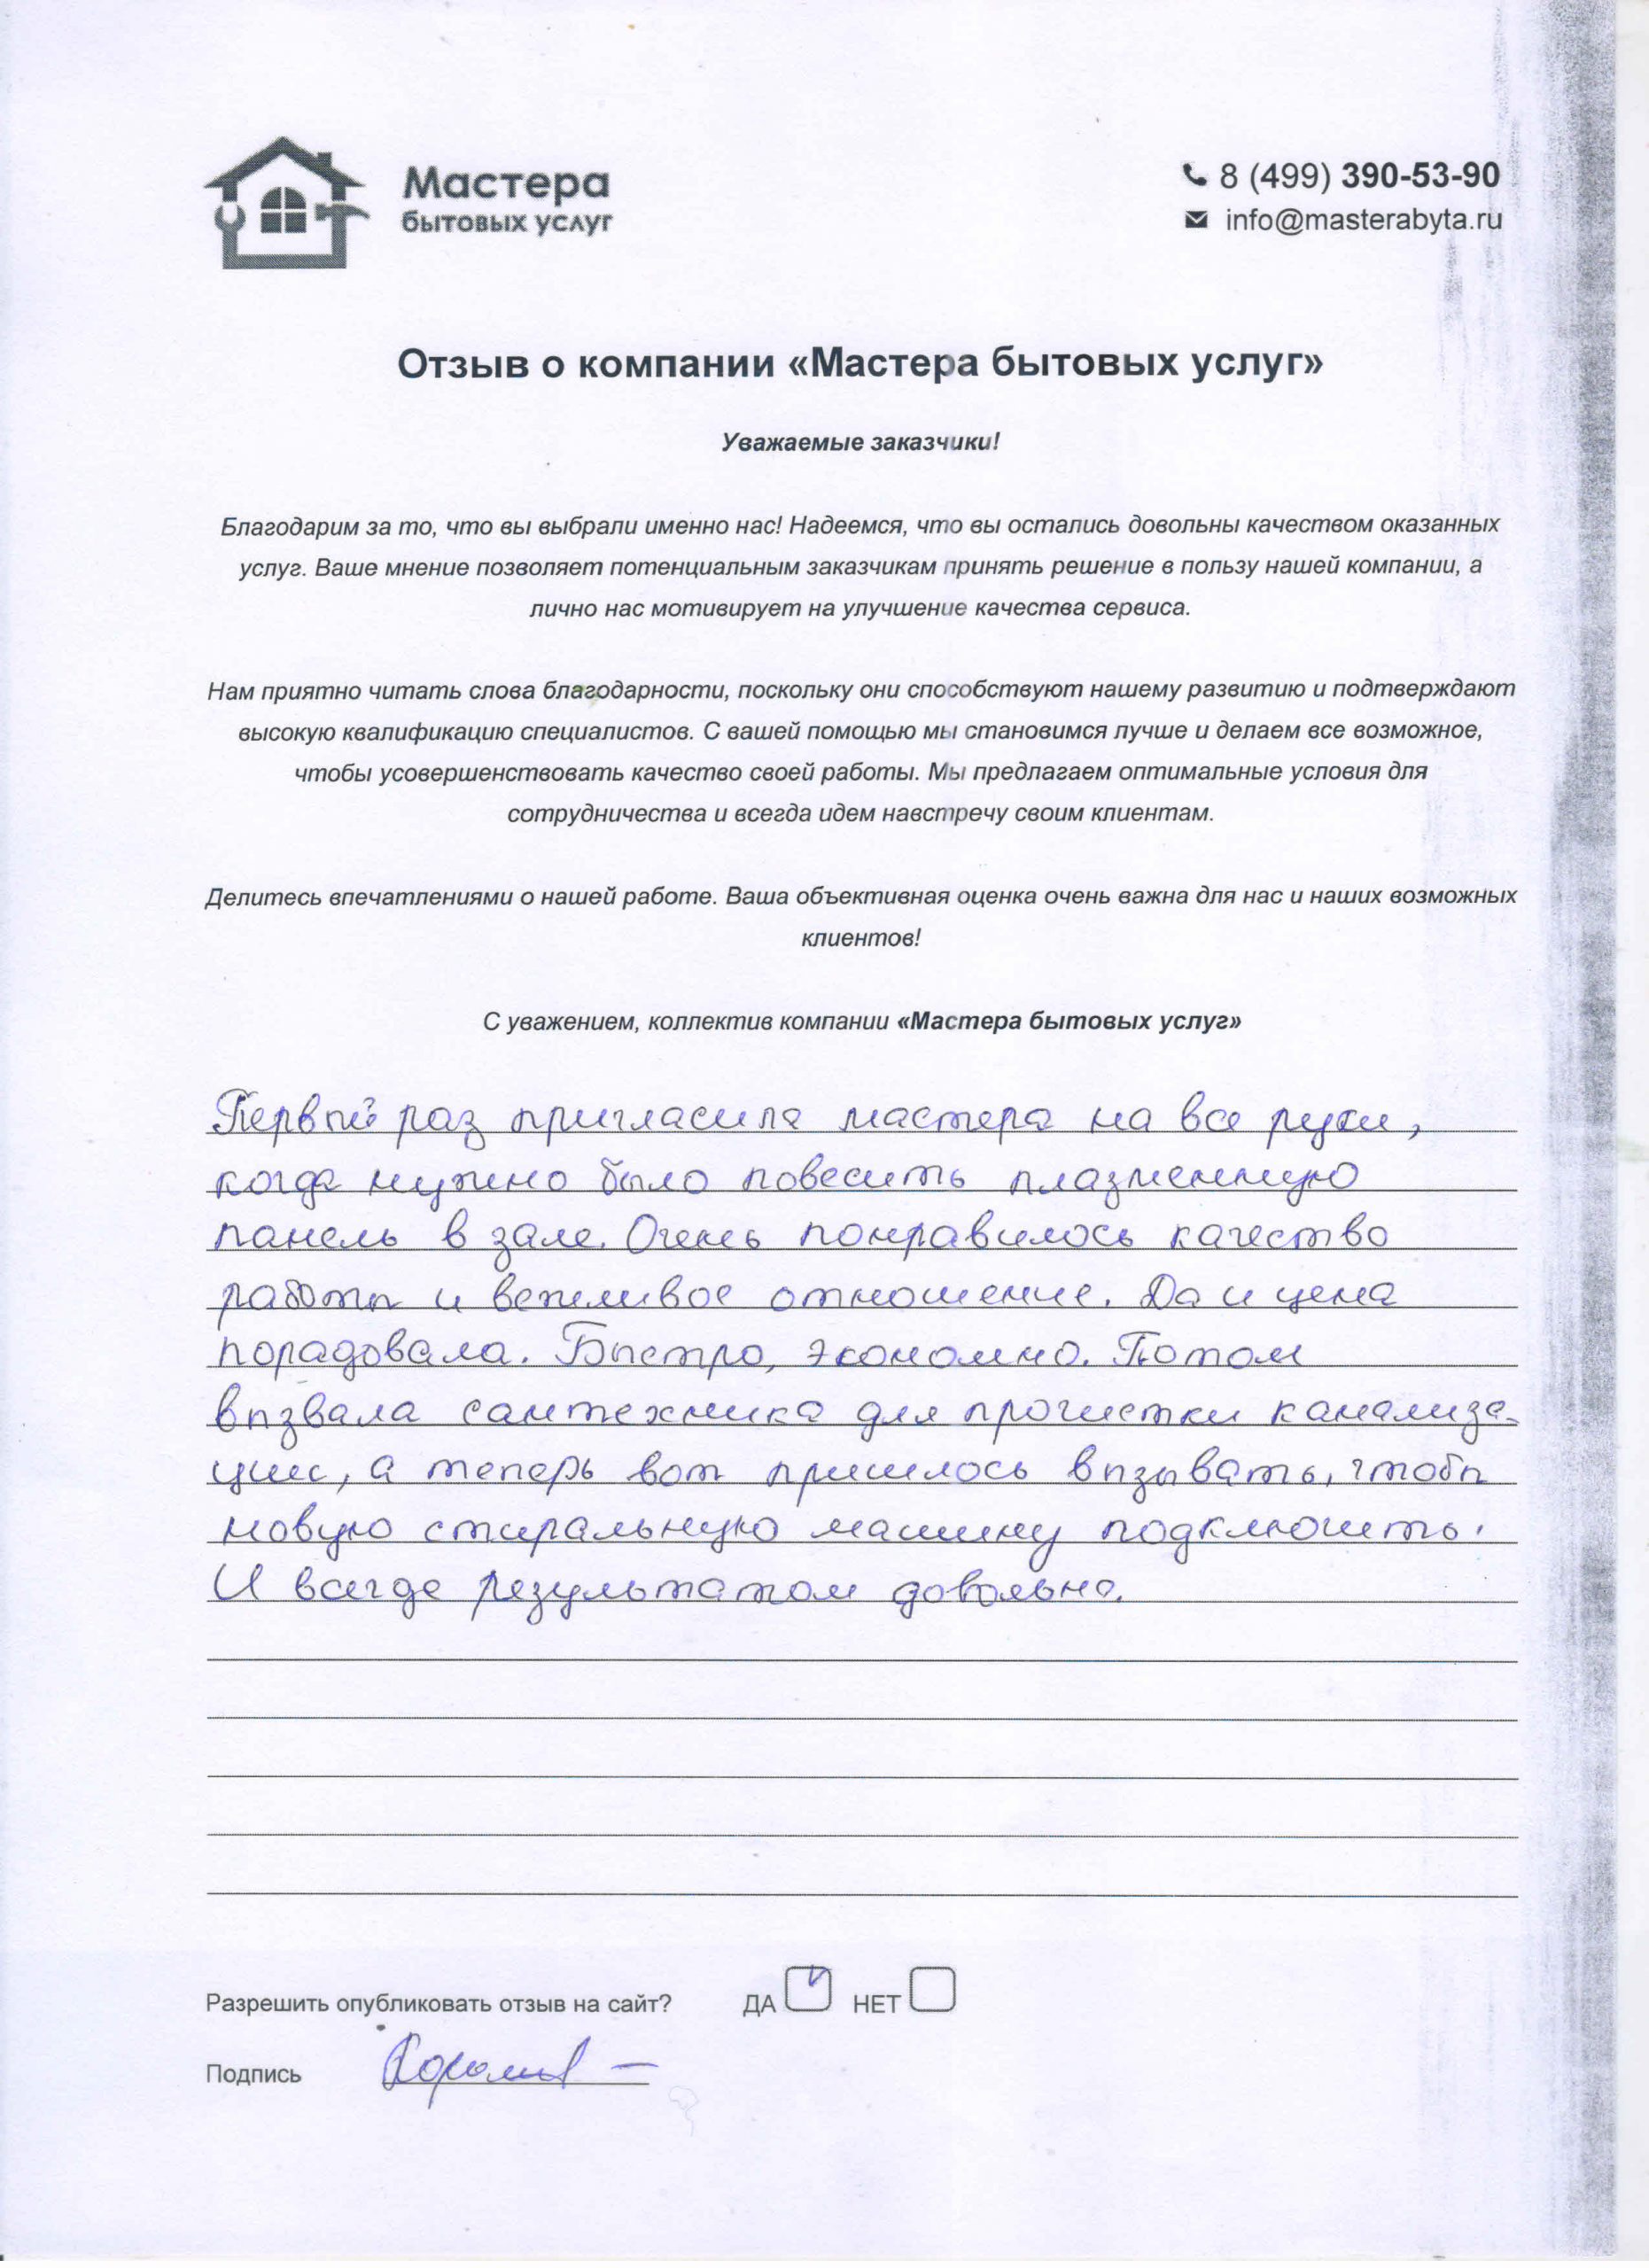 Мастера
бытовых услуг
8 (499) 390-53-90
info@masterabyta.ru
Отзыв о компании «Мастера бытовых услуг»
Уважаемые заказчики!
Благодарим за то, что вы выбрали именно нас! Надеемся, что вы остались довольны качеством оказанных
услуг. Ваше мнение позволяет потенциальным заказчикам принять решение в пользу нашей компании, а
лично нас мотивирует на улучшение качества сервиса.
Нам приятно читать слова благодарности, поскольку они способствуют нашему развитию и подтверждают
высокую квалификацию специалистов. С вашей помощью мы становимся лучше и делаем все возможное,
чтобы усовершенствовать качество своей работы. Мы предлагаем оптимальные условия для
сотрудничества и всегда идем навстречу своим клиентам.
Делитесь впечатлениями о нашей работе. Ваша объективная оценка очень важна для нас и наших возможных
клиентов!
С уважением, коллектив компании «Мастера бытовых услуг»
Первый раз пригласила мастера на все руки,
когда нужно было повесить плазменную
панель в зале. Очень понравилось качество
работы и вежливое отношение. Да и цена
порадовала. Быстро, экономно. Потом
вызвала сантехника для прочистки канализа-
ции, а теперь вот пришлось вызывать, чтобы
новую стиральную машину подключить.
И всегда результатом довольна.
Разрешить опубликовать отзыв на сайт? ДА НЕТ
Подпись